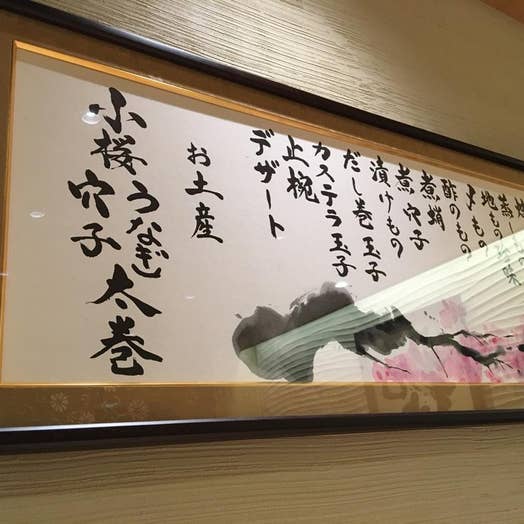 蒸し
地もの
夕もの
酢のもの
煮蛸
煮穴子
漬けもの
だし巻玉子
カステラ玉子
止椀
デザート
お土産
小桜うなぎ
穴子太巻